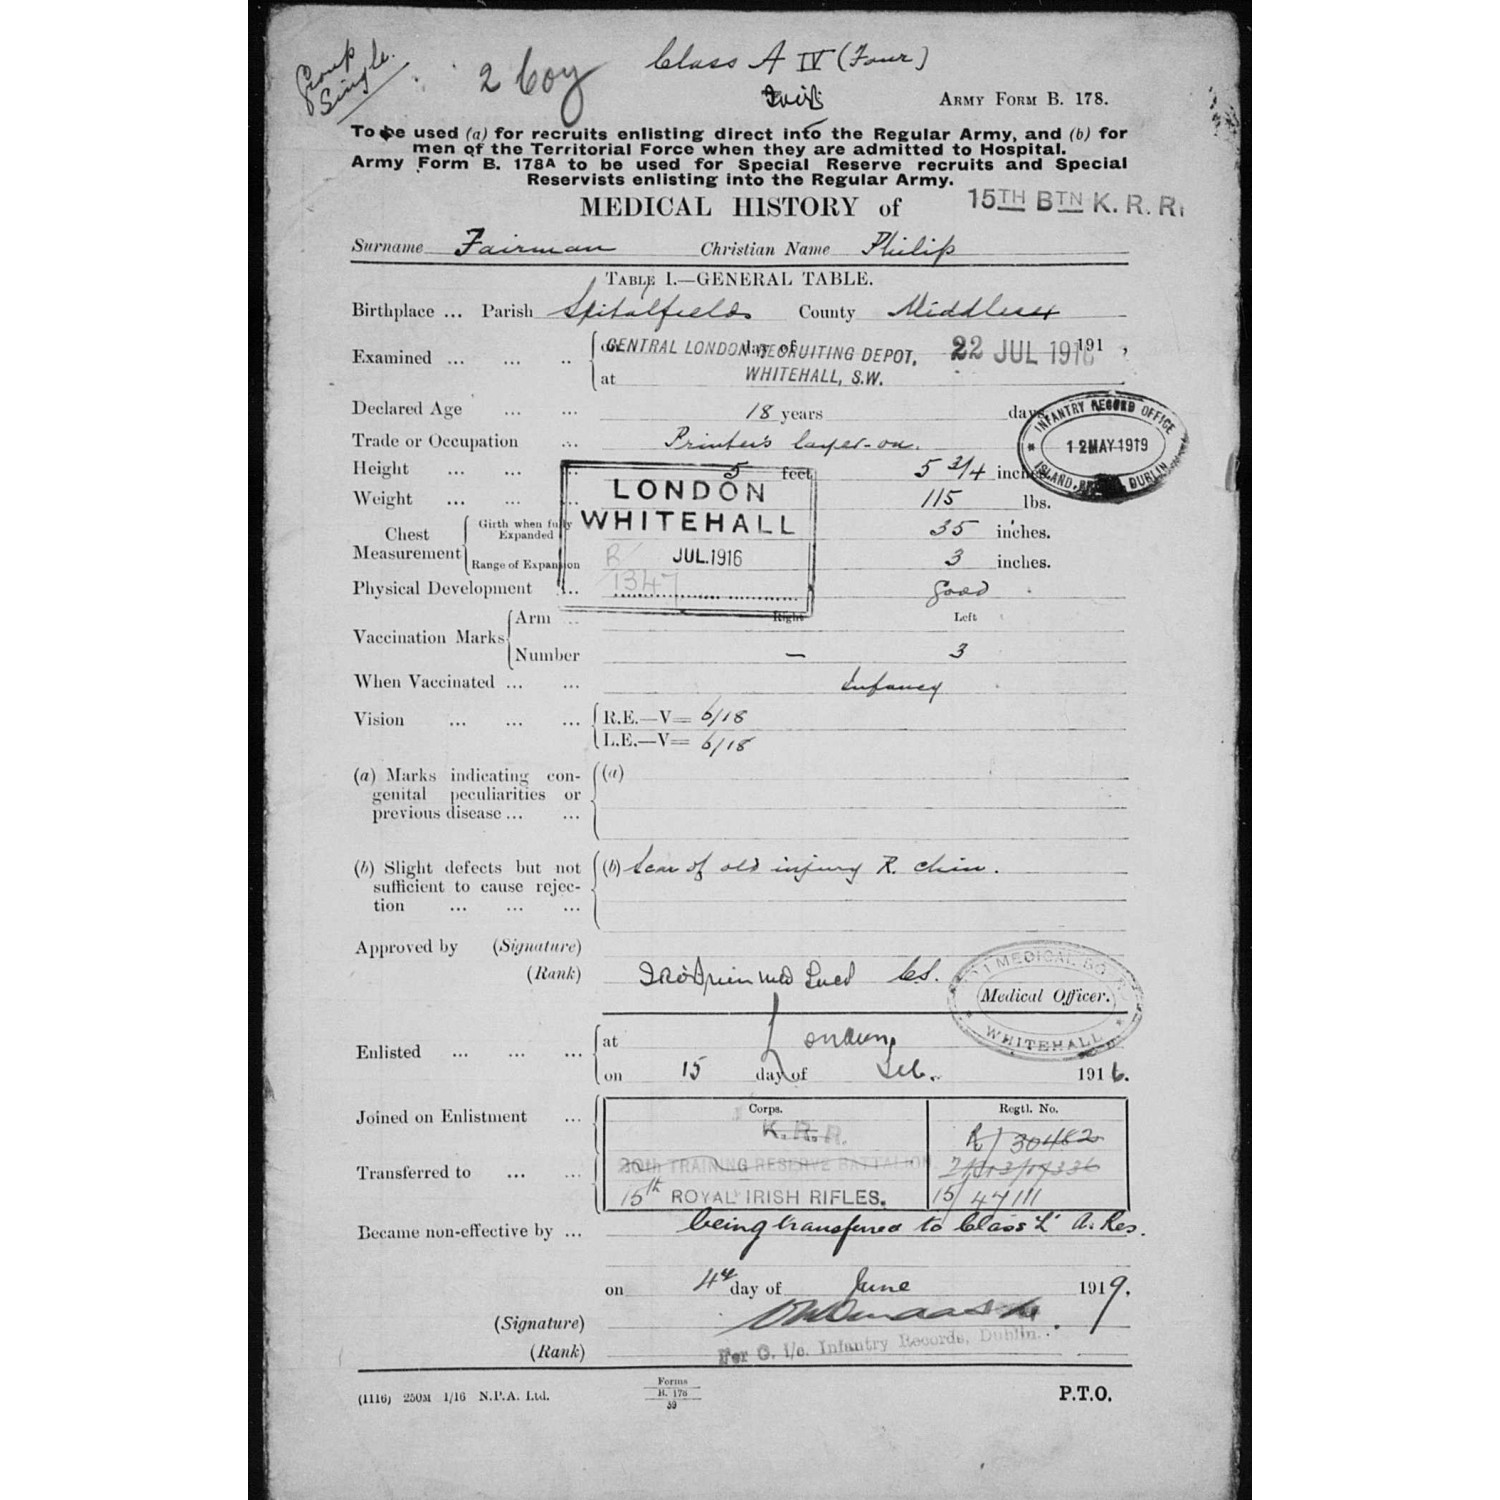 Group
Single.
2 Coy
Class A IV (Four)
ARMY FORM B. 178.
To be used (a) for recruits enlisting direct into the Regular Army, and (b) for
men of the Territorial Force when they are admitted to Hospital.
Army Form B. 178A to be used for Special Reserve recruits and Special
Reservists enlisting into the Regular Army.
MEDICAL HISTORY of
15TH BTN K. R. R.
Surname Fairman Christian Name Philip
TABLE I.—GENERAL TABLE.
Birthplace ... Parish Spitalfields County Middlesex
Examined ... ... .. on day of 22 JUL 1916 191 ,
CENTRAL LONDON RECRUITING DEPOT,
at WHITEHALL, S.W.
Declared Age ... ... 18 years days
INFANTRY RECORD OFFICE
12 MAY 1919
ISLAND, DUBLIN
Trade or Occupation ... Printer's layer-on.
Height ... ... ... 5 feet 5 3/4 inches
Weight ... ... ... 115 lbs.
LONDON
WHITEHALL
JUL.1916
R/
1347
Chest Measurement
Girth when fully Expanded 35 inches.
Range of Expansion 3 inches.
Physical Development ... good
Vaccination Marks
Arm .. Right Left
Number — 3
When Vaccinated ... ... Infancy
Vision ... ... ... R.E.—V= 6/18
L.E.—V= 6/18
(a) Marks indicating con- (a)
genital peculiarities or
previous disease ... ...
(b) Slight defects but not (b) Scar of old injury R. chin.
sufficient to cause rejec-
tion ... ... ...
Approved by (Signature)
(Rank)
MEDICAL BO
Medical Officer.
WHITEHALL
Enlisted ... ... ... at London
on 15 day of Feb. 1916.
Corps. Regtl. No.
Joined on Enlistment ... K.R.R. R/30482
Transferred to ... ... 30TH TRAINING RESERVE BATTALION
15th ROYAL IRISH RIFLES. 15/47111
Became non-effective by ... being transferred to Class 'Z' A. Res.
on 4th day of June 1919.
(Signature)
For O. i/c. Infantry Records, Dublin.
(Rank)
(1116) 250M 1/16 N.P.A. Ltd.
Forms
B. 178
39
P.T.O.